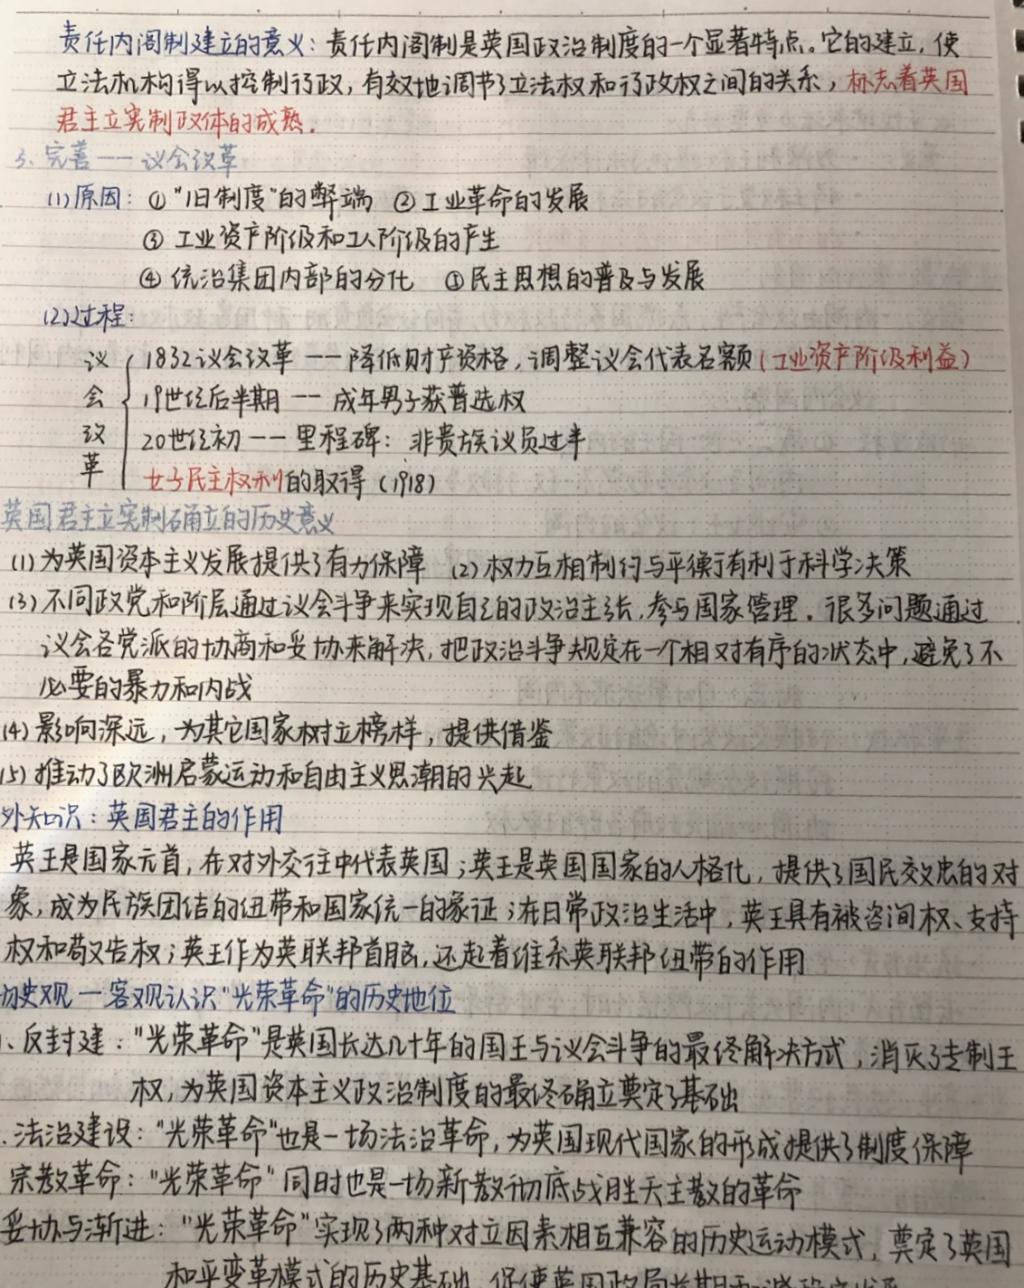 责任内阁制建立的意义：责任内阁制是英国政治制度的一个显著特点。它的建立，使
立法机构得以控制行政，有效地调节了立法权和行政权之间的关系，标志着英国
君主立宪制政体的成熟.
3、完善——议会改革
(1)原因：①"旧制度"的弊端 ②工业革命的发展
③ 工业资产阶级和工人阶级的产生
④ 统治集团内部的分化 ⑤民主思想的普及与发展
(2)过程：
议会改革
1832议会改革——降低财产资格，调整议会代表名额（工业资产阶级利益）
19世纪后半期——成年男子获普选权
20世纪初——里程碑：非贵族议员过半
女子民主权利的取得（1918）
英国君主立宪制确立的历史意义
(1)为英国资本主义发展提供了有力保障 (2)权力互相制约与平衡有利于科学决策
(3)不同政党和阶层通过议会斗争来实现自己的政治主张，参与国家管理．很多问题通过
议会各党派的协商和妥协来解决，把政治斗争规定在一个相对有序的状态中，避免了不
必要的暴力和内战
(4)影响深远，为其它国家树立榜样，提供借鉴
(5)推动了欧洲启蒙运动和自由主义思潮的兴起
外知识：英国君主的作用
英王是国家元首，在对外交往中代表英国；英王是英国国家的人格化，提供了国民效忠的对
象，成为民族团结的纽带和国家统一的象征；在日常政治生活中，英王具有被咨询权、支持
权和敬告权；英王作为英联邦首脑，还起着维系英联邦纽带的作用
史观—客观认识"光荣革命"的历史地位
、反封建："光荣革命"是英国长达几十年的国王与议会斗争的最终解决方式，消灭了专制王
权，为英国资本主义政治制度的最终确立奠定了基础
．法治建设："光荣革命"也是一场法治革命，为英国现代国家的形成提供了制度保障
宗教革命："光荣革命"同时也是一场新教彻底战胜天主教的革命
妥协与渐进："光荣革命"实现了两种对立因素相互兼容的历史运动模式，奠定了英国
和平变革模式的历史基础，促使英国政局长期